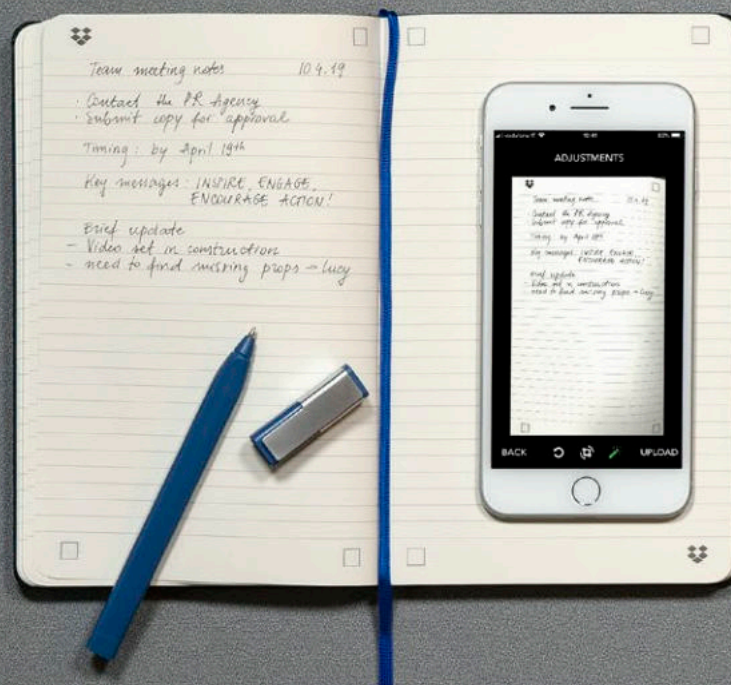 Team meeting notes 10.4.19
· Contact the PR Agency
· Submit copy for approval
Timing : by April 19th
Key messages : INSPIRE, ENGAGE,
ENCOURAGE ACTION!
Brief update
- Video set in construction
- need to find missing props - Lucy
ADJUSTMENTS
Team meeting notes 10.4.19
· Contact the PR Agency
· Submit copy for approval
Timing : by April 19th
Key messages : INSPIRE, ENGAGE,
ENCOURAGE ACTION!
Brief update
- Video set in construction
- need to find missing props - Lucy
BACK UPLOAD